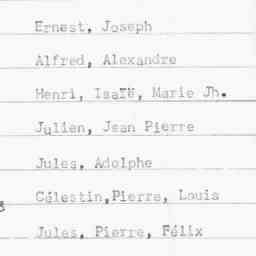 Ernest, Joseph
Alfred, Alexandre
Henri, Isaïe, Marie Jh.
Julien, Jean Pierre
Jules, Adolphe
Célestin,Pierre, Louis
Jules, Pierre, Félix